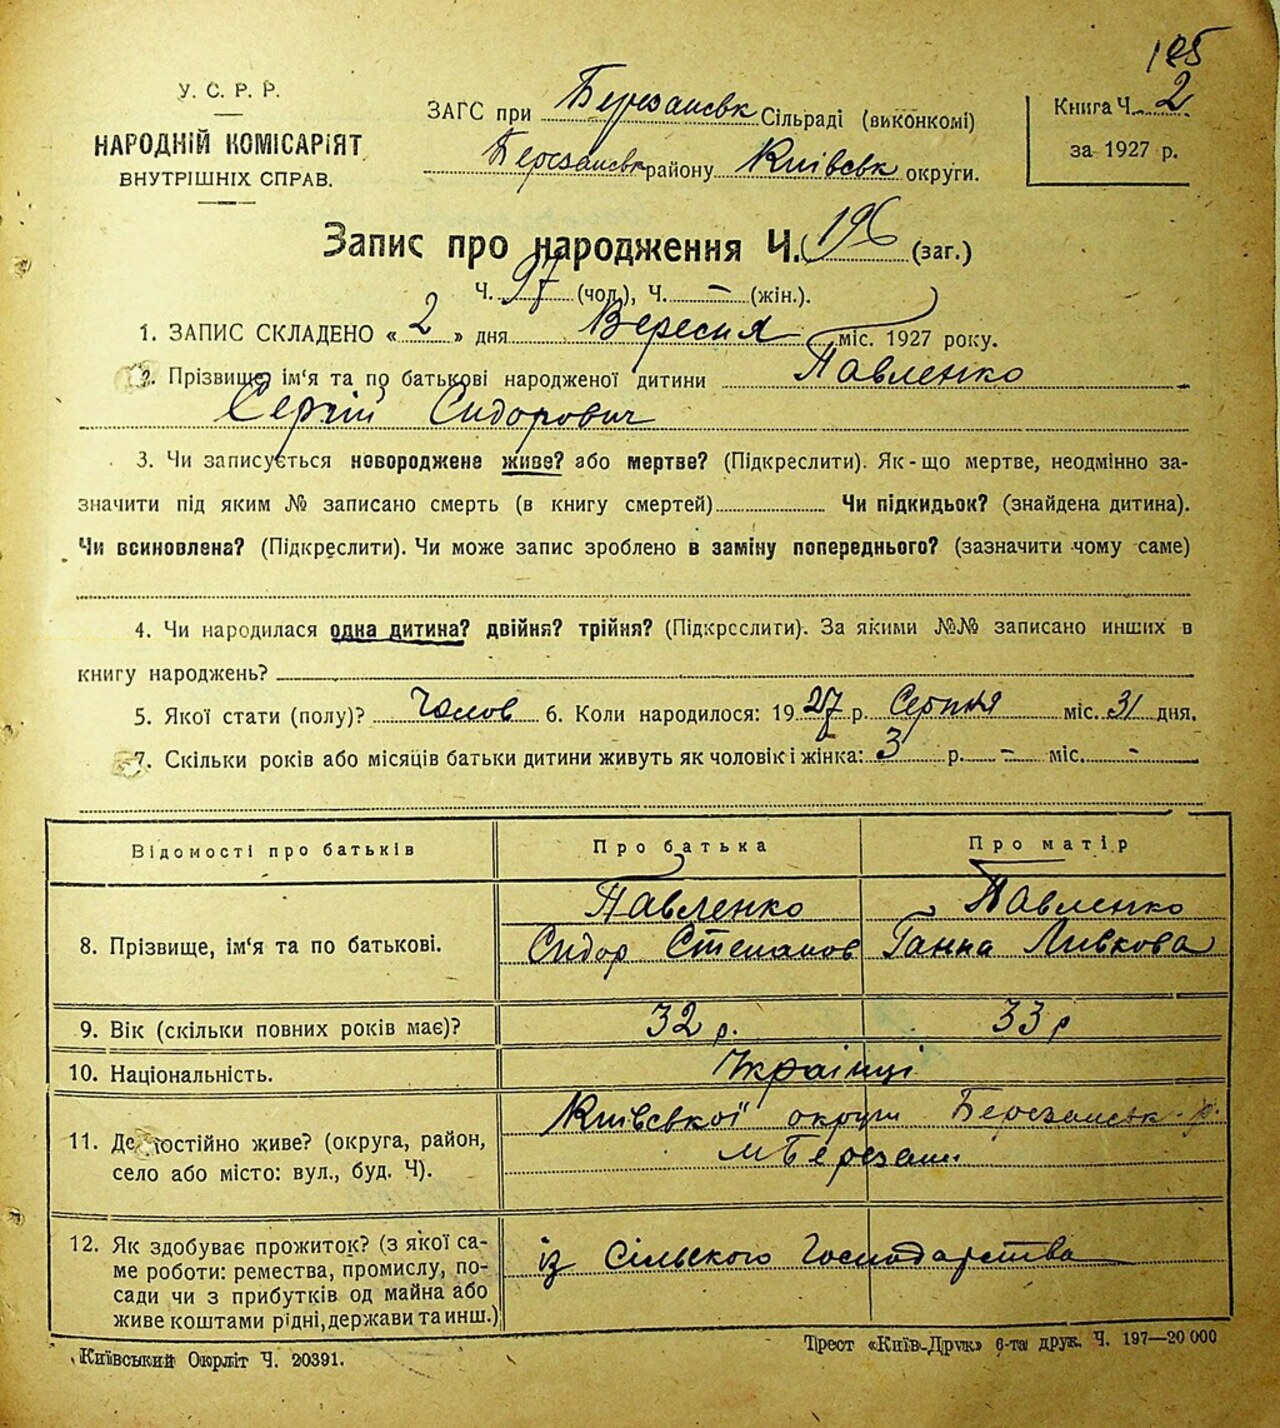 195
У. С. Р. Р.
НАРОДНІЙ КОМІСАРІЯТ
ВНУТРІШНІХ СПРАВ.
ЗАГС при Березанськ Сільраді (виконкомі)
Березанськ району Київськ округи.
Книга Ч. 2
за 1927 р.
Запис про народження Ч. 196 (заг.)
Ч. 97 (чол.), Ч. – (жін.).
1. ЗАПИС СКЛАДЕНО «2» дня Вересня міс. 1927 року.
2. Прізвище, ім‘я та по батькові народженої дитини Павленко
Сергій Сидорович
3. Чи записується новороджене живе? або мертве? (Підкреслити). Як-що мертве, неодмінно за-
значити під яким № записано смерть (в книгу смертей) Чи підкидьок? (знайдена дитина).
Чи всиновлена? (Підкреслити). Чи може запис зроблено в заміну попереднього? (зазначити чому саме)
4. Чи народилася одна дитина? двійня? трійня? (Підкреслити). За якими №№ записано инших в
книгу народжень?
5. Якої стати (полу)? Чолов 6. Коли народилося: 1927 р. Серпня міс. 31 дня.
7. Скільки років або місяців батьки дитини живуть як чоловік і жінка: 3 р. – міс. –
Відомості про батьків Про батька Про матір
Павленко Павленко
8. Прізвище, ім‘я та по батькові. Сидор Степанов Ганна Ливкова
9. Вік (скільки повних років має)? 32 р. 33 р
10. Національність. Українці
Київської округи Березанськ. р.
11. Де постійно живе? (округа, район, м Березань
село або місто: вул., буд. Ч).
12. Як здобуває прожиток? (з якої са- із Сільского Господарства
ме роботи: ремества, промислу, по-
сади чи з прибутків од майна або
живе коштами рідні, держави та инш.)
Київський Окрліт Ч. 20391.
Трест «Київ-Друк» 6-та друк. Ч. 197—20 000